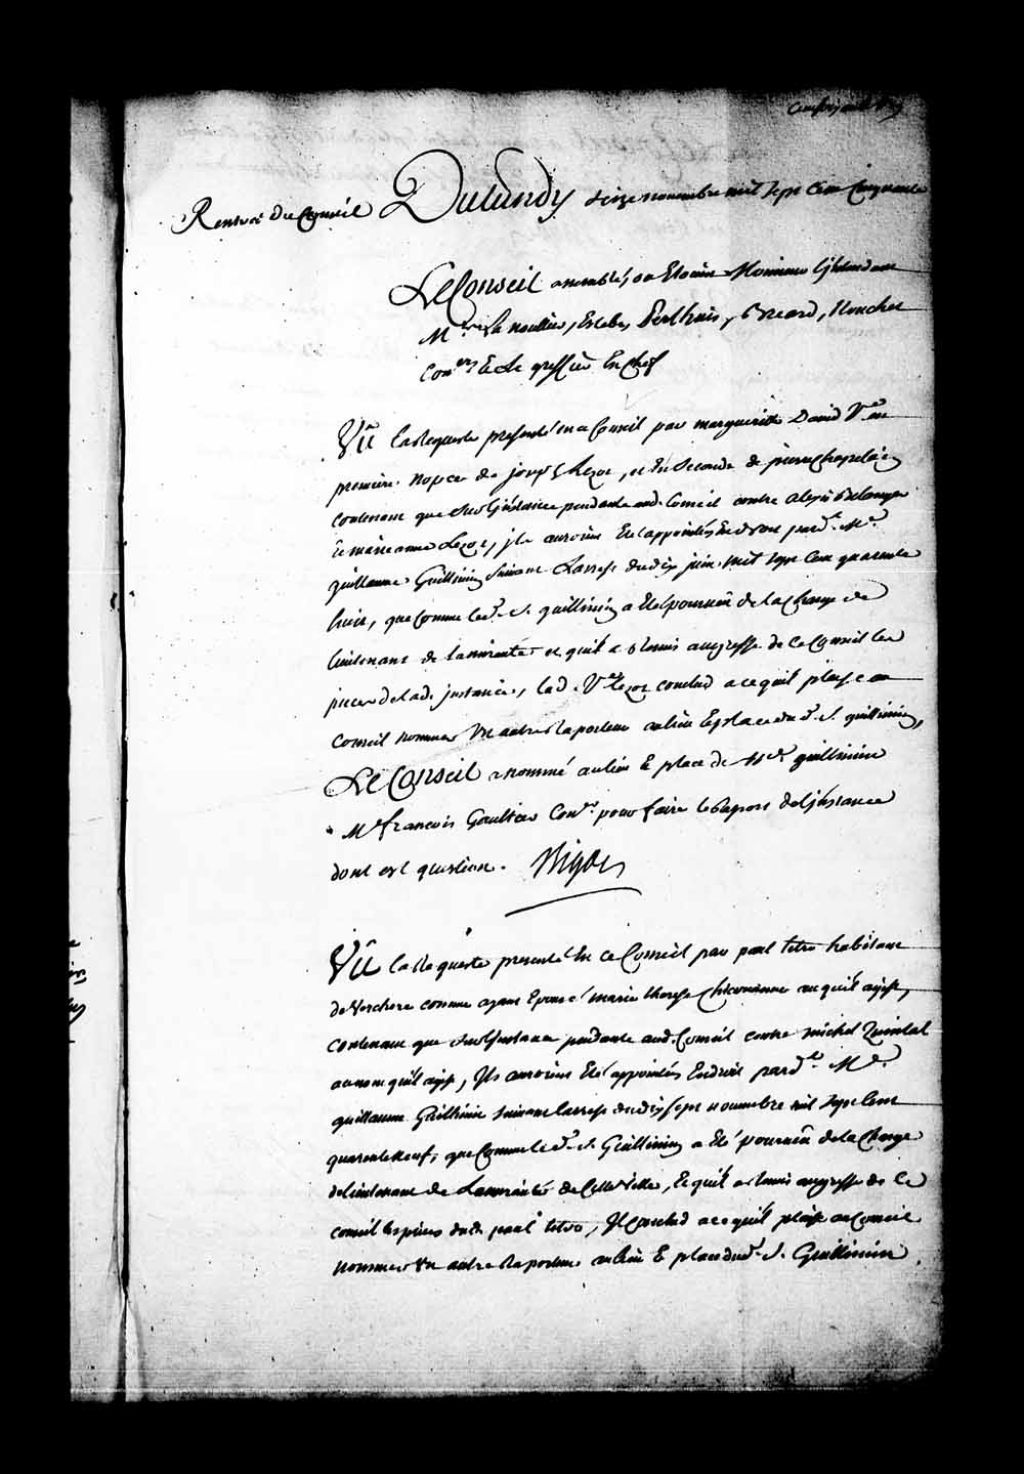 Rentrée du Conseil Du Lundy seize novembre mil sept cent Cinquante
Le Conseil assemblé, ou Etoient Monsieur l'jntendant
Mrs La noullier, Estebe, Perthuis, Breard, Nouchet
Coners Et Le greffier En Chef
Vû La Requeste presenté en ce Conseil par marguerite David Ve en
premiere nopce de joseph Lezot, et En Seconde de pierre Chapelain
contenant que Sur L'jnstance pendante aud. Conseil contre alexis
Et marianne Lezot, jls auroient Eté appointés En droit pard.t Me
guillaume Guillimin Suivant Larrest du dix juin mil sept cent quarente
huit, que Comme led. S. guillimin a Eté pourvû de la Charge de
lieutenant de Lamirauté et quil a remis au greffe de ce Conseil les
pieces de lad. jnstance, lad. Ve Lezot conclud a ce quil plaise au
Conseil nommer Un autre Raporteur au lieu Et place dud. S. guillimin,
Le Conseil a nommé au lieu Et place de Me guillimin
Me francois Gaultier Coner pour faire le Raport de L'jnstance
dont est question. Bigot
Vû La Requeste presenté En ce Conseil par paul tetro habitant
de Verchere comme ayant Epousé marie therese Chicouanne au nom quil agist,
contenant que Sur L'jnstance pendante aud. Conseil contre michel Quintal
au nom quil agist, jls auroient Eté appointés En droit pard.t Me
guillaume Guillimin Suivant Larrest du dix sept novembre mil sept cent
quarente neuf, que Comme led. S. Guillimin a Eté pourvû de la Charge
de lieutenant de Lamirauté de Cette Ville, Et quil a remis au greffe de Ce
Conseil les pieces dud. paul tetro, jl conclud a ce quil plaise au Conseil
nommer Un autre Raporteur au lieu Et place dud. S. Guillimin